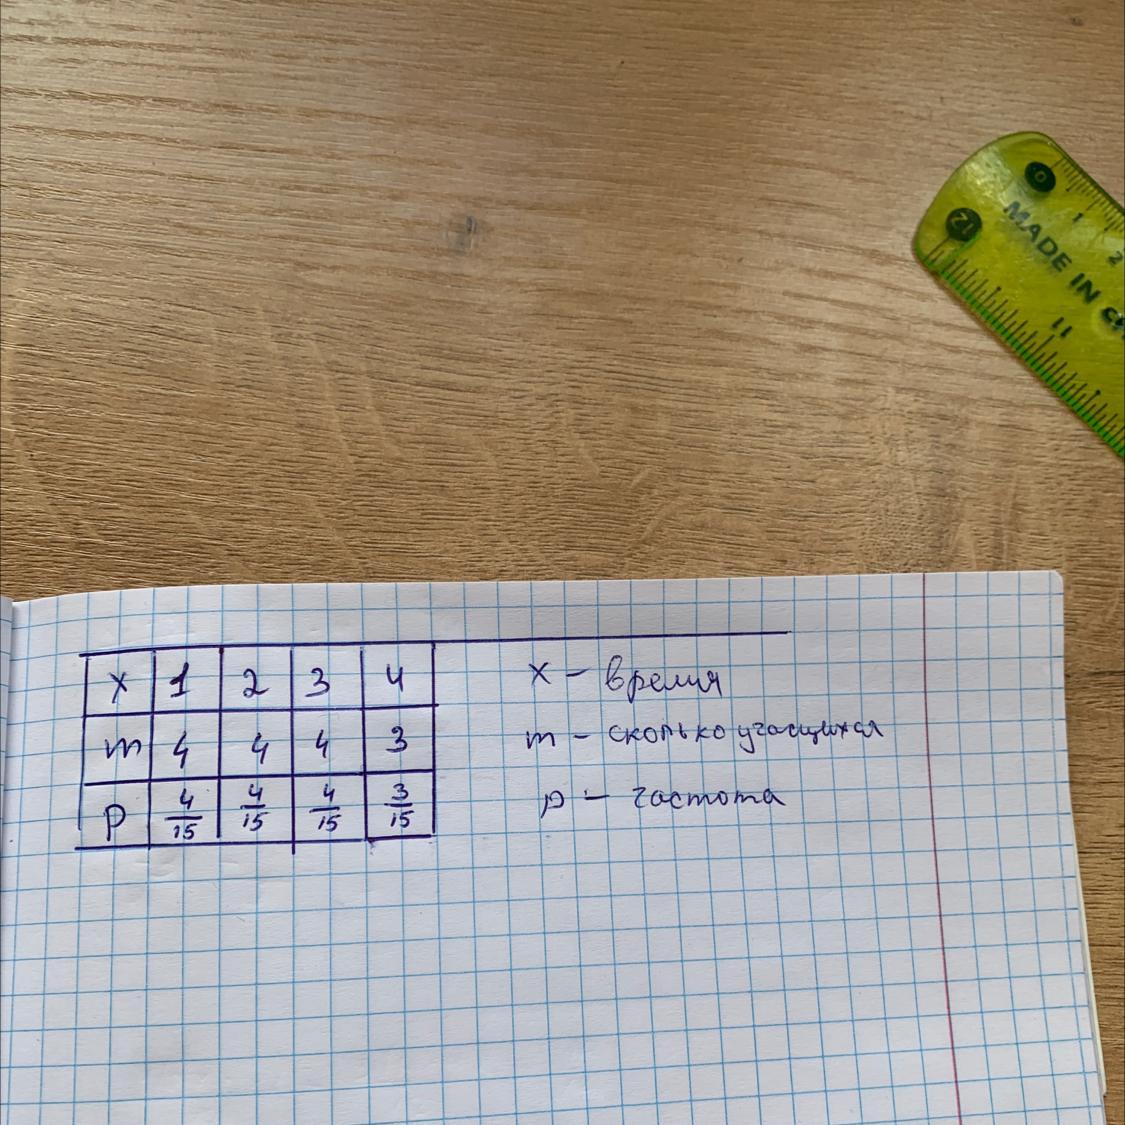 0
1
2
12
11
MADE IN
x 1 2 3 4
m 4 4 4 3
p 4/15 4/15 4/15 3/15
x - время
m - сколько учащихся
p - частота